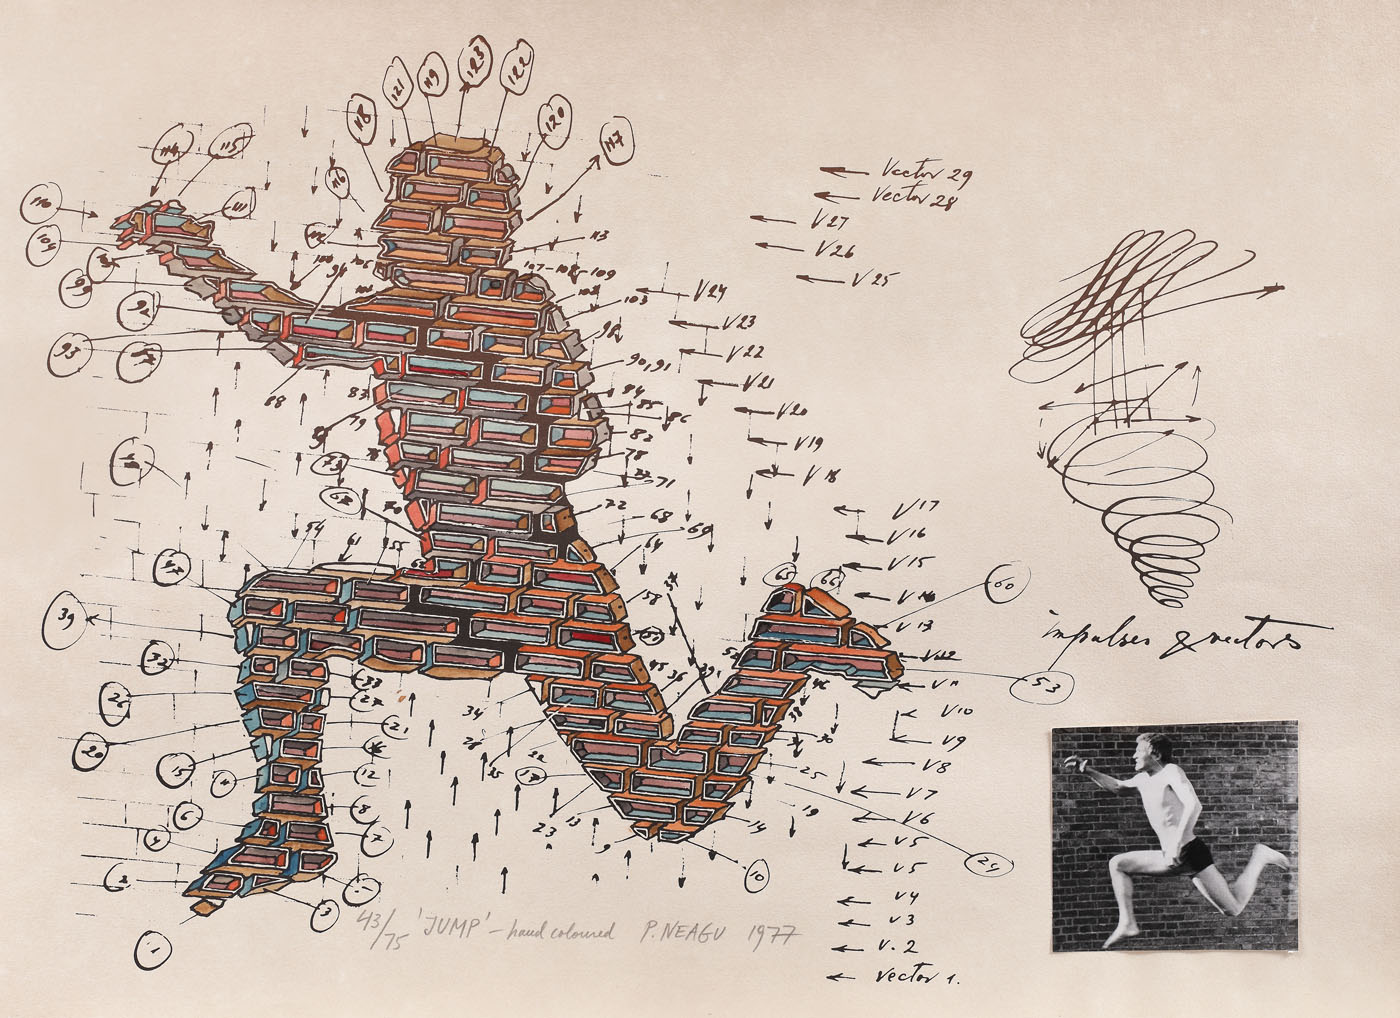 123
122
121
119
118
120
117
114
115
116
110
111
113
107-108-109
103
98
90,91
94
85
86
82
78
71
72
68
69
64
58
93
88
83
79
70
54
61
55
39
33
26
20
15
6
4
2
1
3
21
12
8
7
34
23
13
9
10
14
19
25
30
45
36
60
53
24
66
Vector 29
Vector 28
V27
V26
V25
V24
V23
V22
V21
V20
V19
V18
V17
V16
V15
V14
V13
V12
V11
V10
V9
V8
V7
V6
V5
V5
V4
V3
V.2
Vector 1.
impulses & vectors
43/75 'JUMP' – hand coloured P. NEAGU 1977